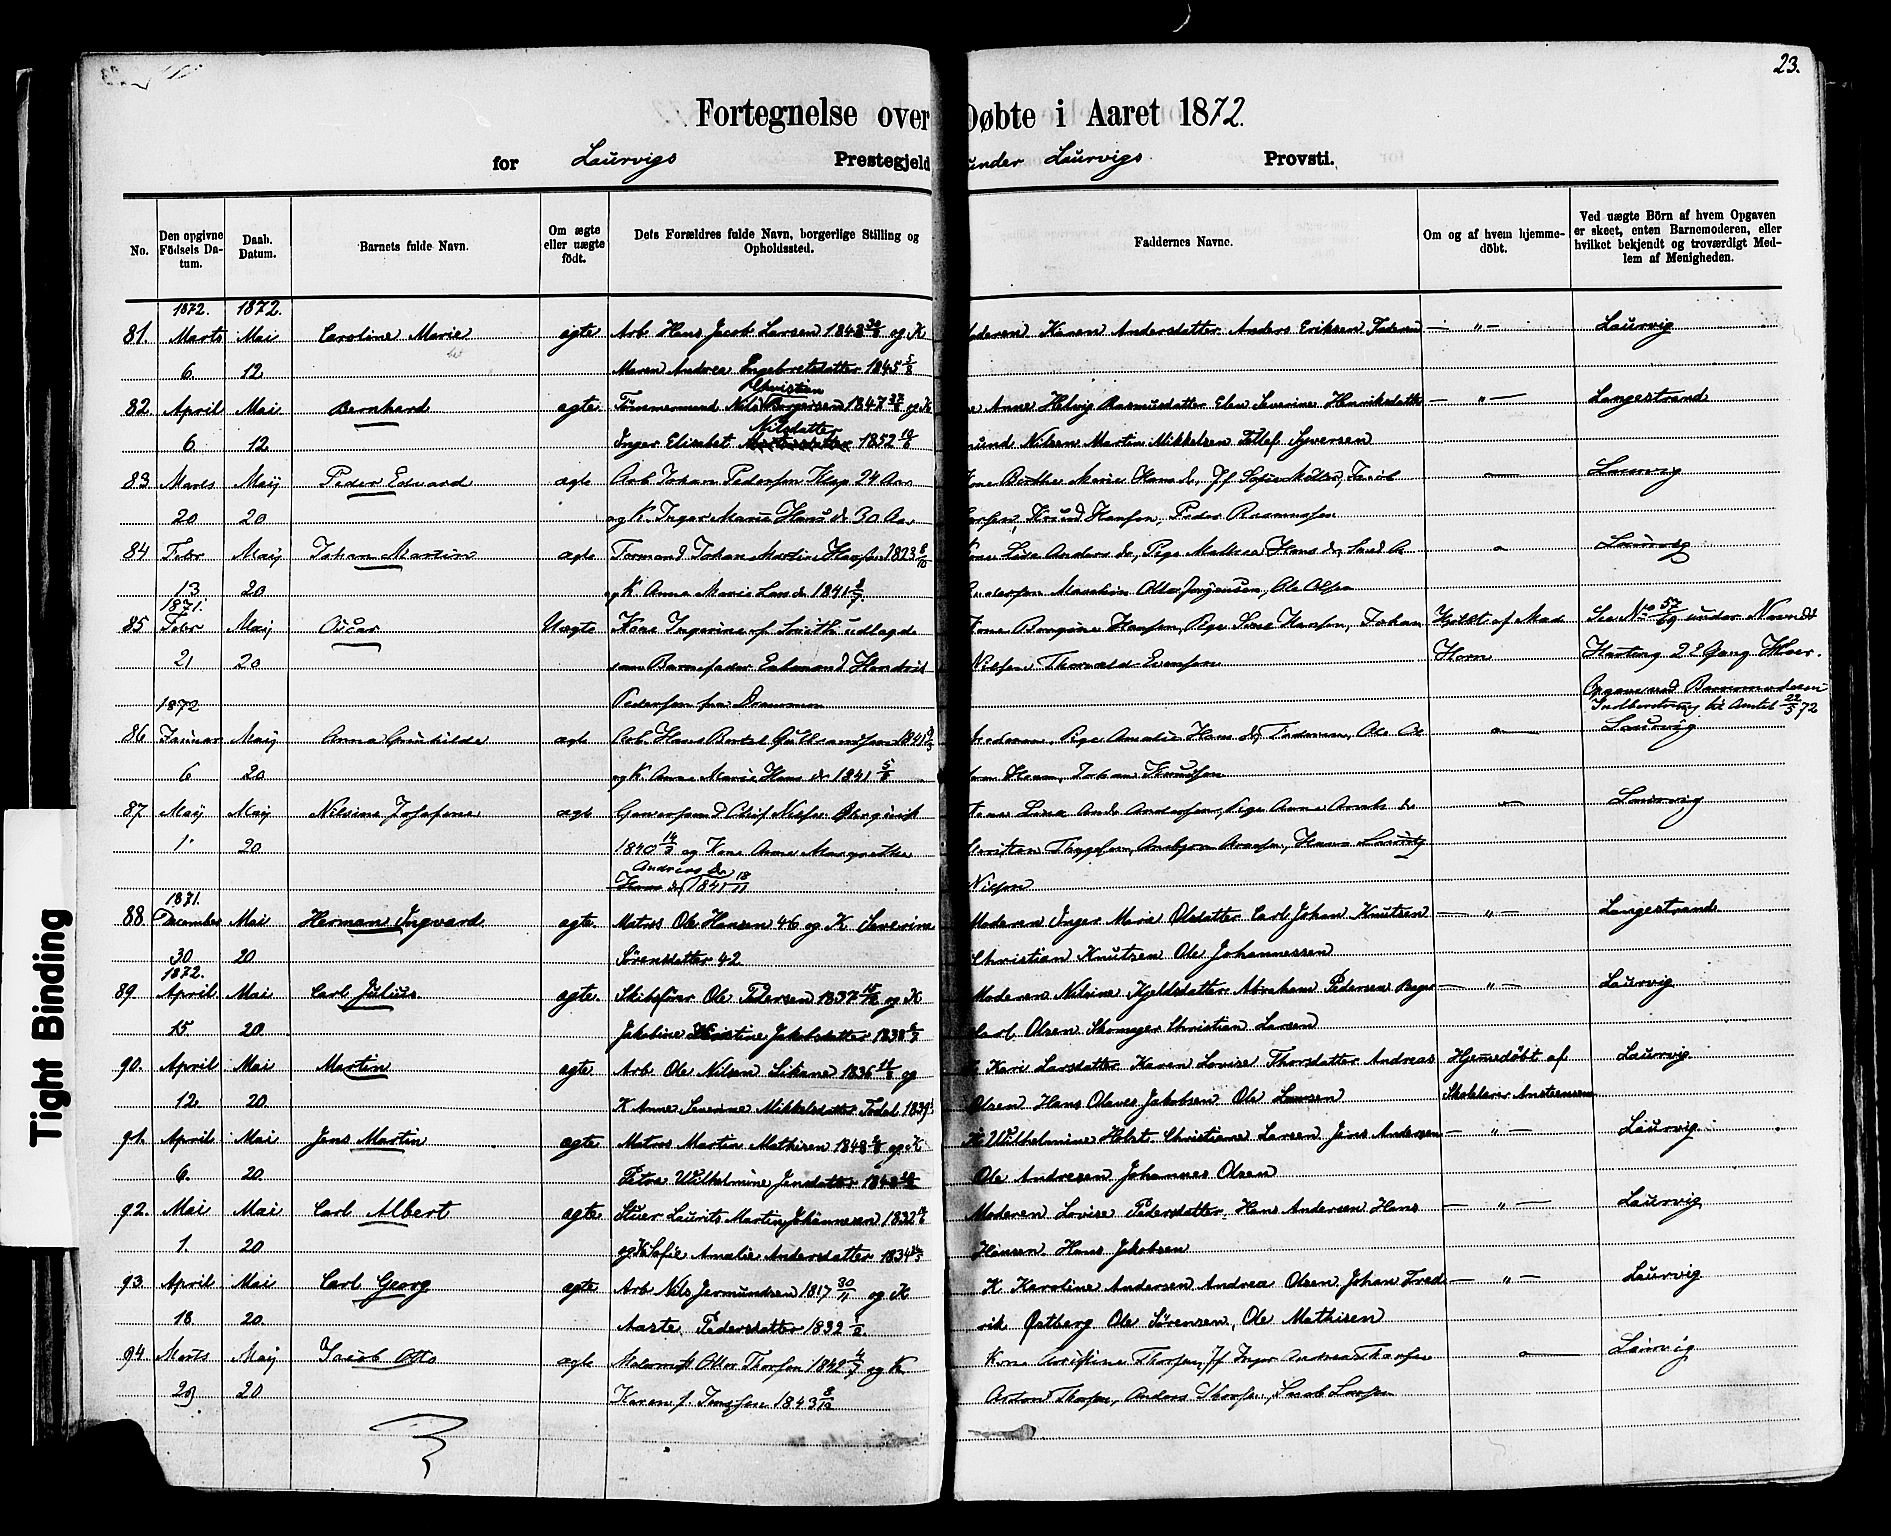 23.
Fortegnelse over Døbte i Aaret 1872.
for Laurvigs Prestegjeld under Laurvigs Provsti.
No.
Den opgivne Födsels Da-tum.
Daab. Datum.
Barnets fulde Navn.
Om ægte eller uægte födt.
Dets Forældres fulde Navn, borgerlige Stilling og Opholdssted.
Faddernes Navne.
Om og af hvem hjemme-döbt.
Ved uægte Börn af hvem Opgaven er skeet, enten Barnemoderen, eller hvilket bekjendt og troværdigt Med-lem af Menigheden.
1872. 1872.
81. Marts Mai Caroline Marie ægte Arb Hans Jacob Larsen 1848 og K Moderen Karen Andersdatter Anders Eriksen Faderen — „ — Laurvig
6 12 Maren Andrea Engebretsdatter 1845 5/8
Christian
82 April Mai Bernhard ægte Tømmermand Nils Børgersen 1847 og K Anne Helvig Rasmusdatter Elen Severine Henriksdatter — „ — Langestrand
Nilsdatter
6 12 Inger Elisabet 1852 Nilsen Martin Mikkelsen Tollef Syversen
83 Marts Maij Peder Edvard ægte Arb Johan Pedersen Klop 24 Aar Kone Birthe Marie Hans d, Jf Sofie Møller, Jacob — Laurvig
20 20 og K. Inger Marie Hans d 30 Aar Larsen, Knud Hansen, Peder Rasmussen
84 Febr Maij Johan Martin ægte Tormand Johan Martin Hansen 1823 Kone Lise Anders d, Pige Mathea Hans d, — Laurvig
13 20 og K Anna Marie Lars d 1841 Andersen Maskin Otto Jørgensen, Ole Olsen
1871.
85 Febr Maij Oscar Uægte Kone Ingerine f. Smith udlagde Kone Bergine Hansen, Pige Hansen, Johan Hjdbt af Mad See No 57/69 under Navnet
21 20 som Barnefader Edmund Hendrik Nilsen Thorvald Evensen Horn Hartvig 2d Gang
1872 Pedersen fra Drammen Opgave ved Barnemoderen
Indberetning til Amtet 22/5 72
86 Januar Maij Anna Gunhilde ægte Arb. Hans Bertel Gulbrandsen 1841 Moderen, Pige Amalie Hans d, Faderen, Ole — Laurvig
6 20 og K. Anne Marie Hans d 1841 5/8 Johan Knudsen
87 Maij Maij Nilsine Josefine ægte Oluf Nilsen Bergqvist Kone Andersen, Pige Anne d — Laurvig
1 20 1840 og Kone Anne Margrethe Christian Thygesen, Hans Lauritz
Andreas d
1841 18/11 Nilsen
1871.
88 December Mai Herman Ingvard ægte. Matros Ole Hansen 46 og K Severine Moderen Inger Marie Olsdatter Carl Johan Knutsen — „ — Langestrand
30 20 Sørensdatter 42 Christian Knutsen Ole Johannessen
1872.
89 April Mai Carl Julius ægte. Skibsfører Ole Pedersen 1837 og K Moderen Nilsine Kjeldsdatter Abraham Pedersen — „ — Laurvig
15 20 Jakobine Kristine Jakobsdatter 1838 Carl Olsen Skomager Christian Larsen
90. April Mai Martin ægte Arb Ole Nilsen 1836 og K Kari Larsdatter Karen Lovise Thorsdatter Andreas Hjemmedøbt af Laurvig
12. 20. K Anne Severine Mikkelsdatter Født 1839 Olsen Hans Olaves Jakobsen Ole Larsen Skolelærer Anstensen
91. April Mai Jens Martin ægte Matros Martin Mathisen 1848 og K K Wilhelmine Holst Christiane Larsen Jens Andersen — „ — Laurvig
6. 20. Petra Wilhelmine Jensdatter 1848 Ole Andresen Johannes Olsen
92. Mai Mai Carl Albert ægte Stuer Laurits Martin Johannesen 1832 Moderen Lovise Pedersdatter Hans Andersen Hans — „ — Laurvig
1. 20 og K Sofie Amalie Andersdatter 1834 Hansen Hans Jakobsen
93. April Mai Carl Georg ægte Arb Nils Jermundsen 1817 30/11 og K K Karoline Andersen Andrea Olsen Johan Fred — „ — Laurvig
18 20. Aaste Pedersdatter 1832 rik Østberg Ole Sørensen, Ole Mathisen
94 Marts Maij Jacob Otto ægte Otter Thorsen 1842 og K Kone Christine Thorsen, Jf Inger Andrea Thorsen — Laurvig
29 20 Karen f. 1843 8/12 Anton Thorsen, Anders Thorsen, Jacob Larsen
Tight Binding